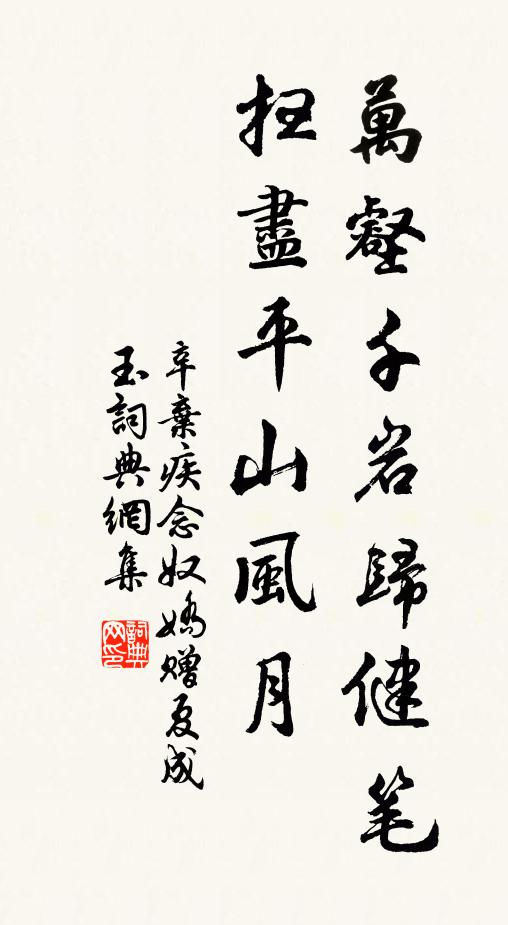 萬壑千岩歸健笔
扫盡平山風月
辛棄疾念奴嬌贈夏成
玉詞典網集
詞典
网印